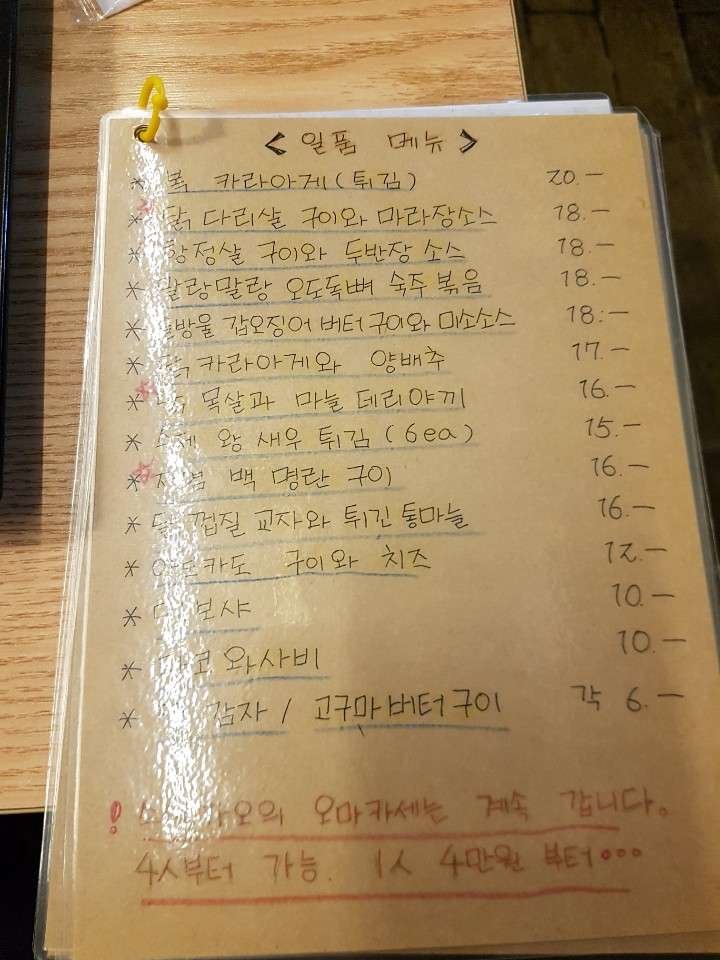 < 일품 메뉴 >
* 복 카라아게 (튀김) 20.-
* 닭 다리살 구이와 마라장소스 18.-
* 항정살 구이와 두반장 소스 18.-
* 말랑말랑 오도독뼈 숙주 볶음 18.-
* 갑오징어 버터구이와 미소소스 18.-
* 닭 카라아게와 양배추 17.-
* 목살과 마늘 데리야끼 16.-
* 수제 왕 새우 튀김 (6ea) 15.-
* 백 명란 구이 16.-
* 닭 껍질 교자와 튀긴 통마늘 16.-
* 아보카도 구이와 치즈 12.-
* 10.-
* 타코 와사비 10.-
* 감자 / 고구마 버터구이 각 6.-
! 오마카세는 계속 갑니다.
4人부터 가능. 1人 4만원 부터...